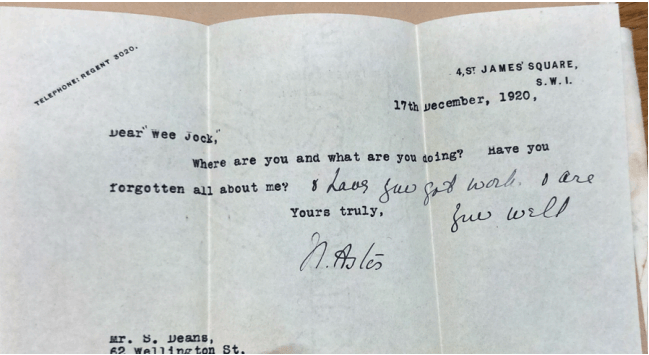 TELEPHONE: REGENT 3020.
4, ST JAMES' SQUARE,
S.W.1.
17th December, 1920,
Dear "Wee Jock,"
Where are you and what are you doing? Have you
forgotten all about me? & have you got work. & are
Yours truly, you well
N. Astor
Mr. S. Deans,
62 Wellington St.